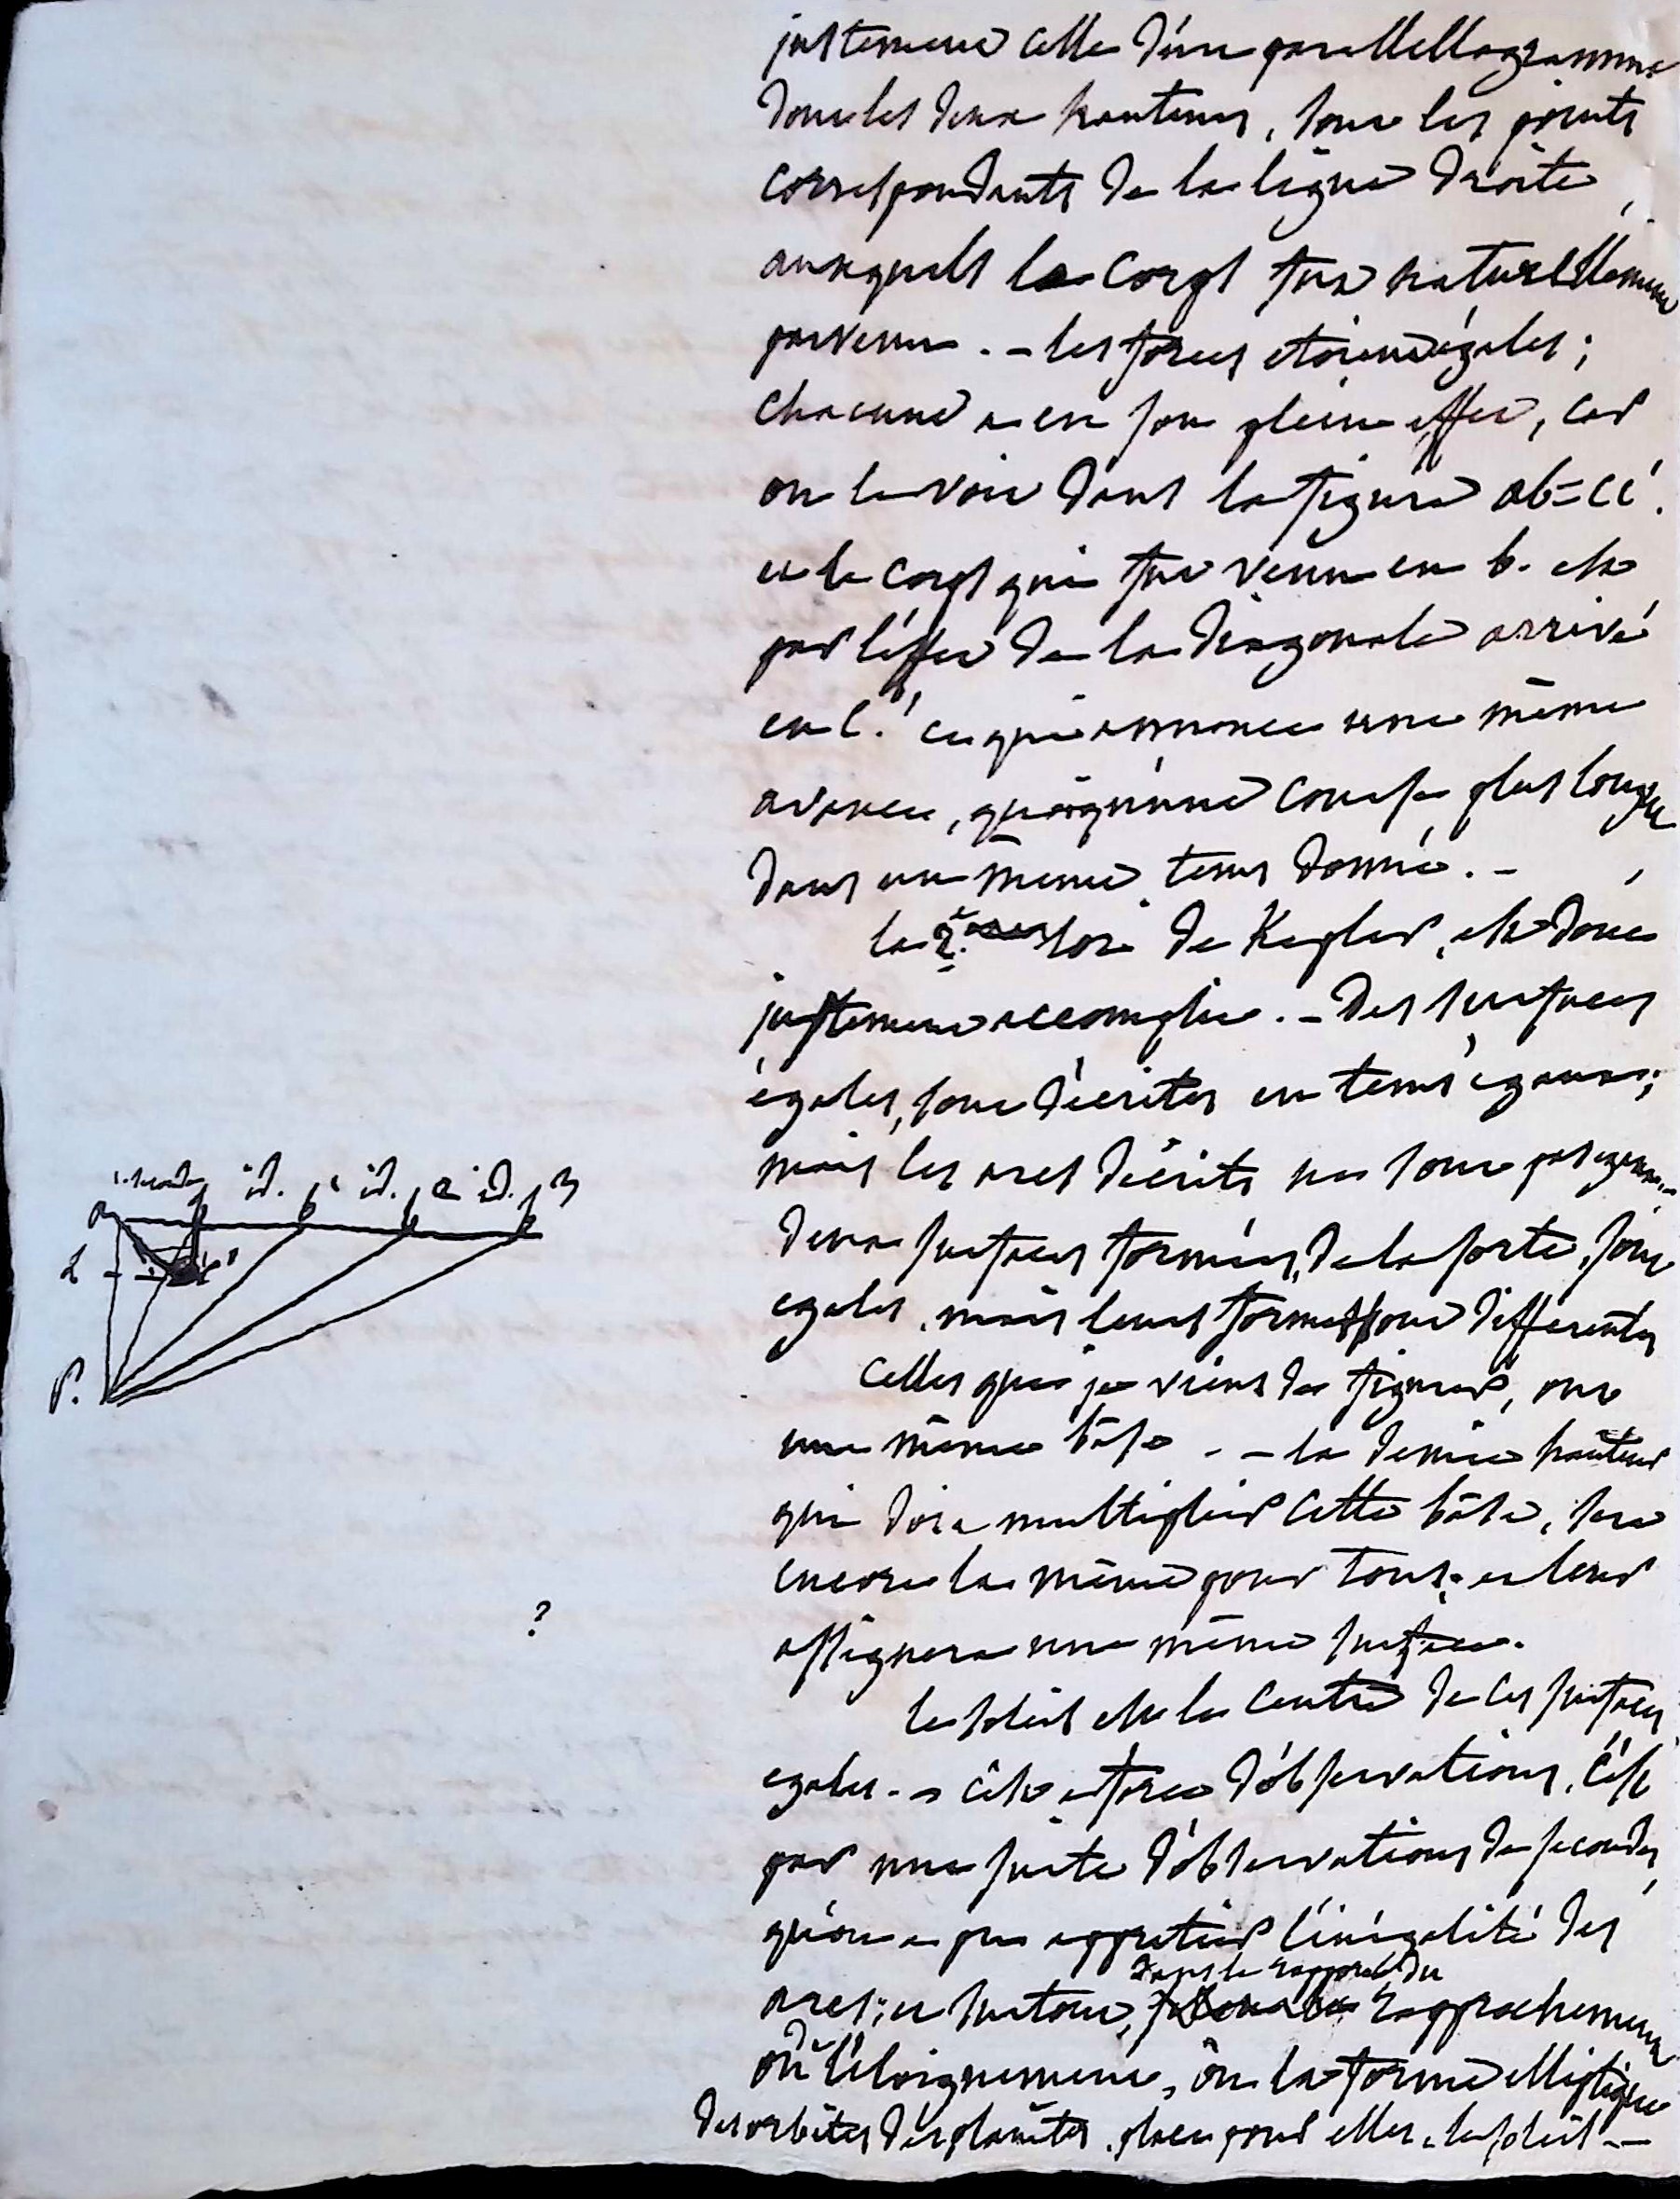 justement celle d'un parallellogramme
dont les deux hauteurs, sont les points
correspondants de la ligne droite,
auxquels le corps fut naturellement
parvenu. - les forces etoient égales;
chacune a eu son plein effet, car
on le voit dans la figure ab=cc'.
et le corps qui fut venu en b. est
par l'éffet de la diagonale arrivé
en c.' ce qui annonce une même
avance, quoiqu'une course plus longue
dans un même tems donné. -
la 2.e loi de Kepler, est donc
justement accomplie. - Des surfaces
égales, sont décrites en tems égaux;
mais les arcs décrits ne sont pas egaux.
deux surfaces formées, de la sorte, sont
egales, mais leurs formes sont differentes
Celles que je viens de figurer, ont
une même bâse. - la demie hauteur
qui doit multiplier cette bâse, sera
encore la même pour tous; et leur
assignera une même surface.
le soleil est le centre de ces surfaces
egales. - c'est a force d'observations, c'est
par une suite d'observations de secondes,
qu'on a pu appretier l'inégalité des
dans le rapport du
arcs; et surtout, rapprochement
du
ou l'éloignement, où la forme elliptique
des orbites des planêtes, place pour elles, le soleil -
1. seconde id. id. id.
a b b b b
c'
S.
?